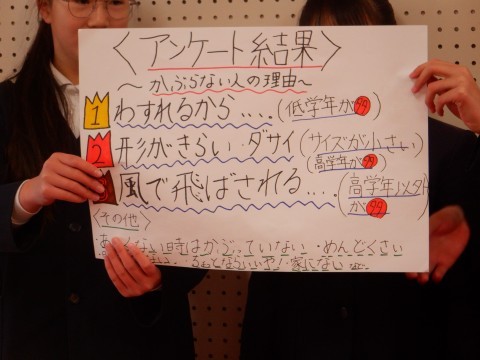 〈アンケート結果〉
～かぶらない人の理由～
1 わすれるから....(低学年が多)
2 形がきらい・ダサイ(サイズが小さい)(高学年が多)
3 風で飛ばされる...(高学年以外が多)
〈その他〉
くない時はかぶっていない ・めんどくさい
家にない